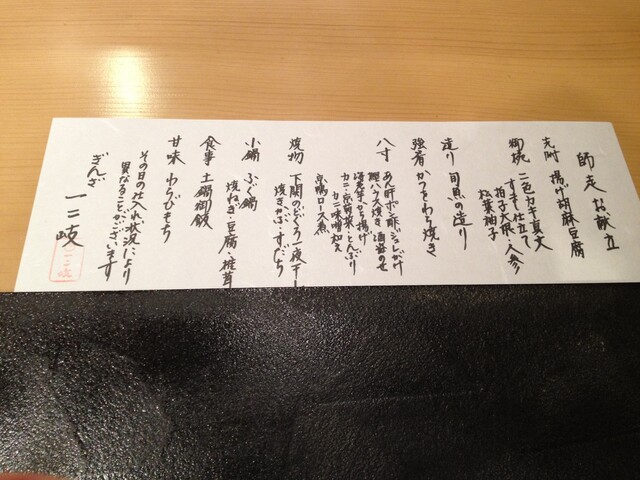 師走 お献立
先附 揚げ胡麻豆腐
御椀 二色カキ真丈
すまし仕立て
拍子大根・人参
松葉柚子
造り 旬魚の造り
強肴 かつをわら焼き
八寸 あん肝ポン酢ジュレがけ
鯉ハラス焼き 酒盗のせ
海老芋から揚げ
カニ・京菊菜・とんぶり
カニ味噌加え
京鴨ロース煮
焼物 下関のどぐろ一夜干し
焼きかぶ・すだち
小鍋 ふぐ鍋
焼ねぎ・豆腐・椎茸
食事 土鍋御飯
甘味 わらびもち
その日の仕入れ状況により
異なることがございます
ぎんざ 一二岐
一二岐